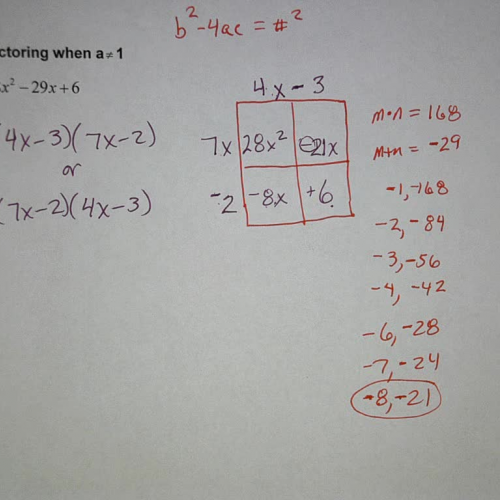 b² - 4ac = #²
ctoring when a≠1
x² − 29x + 6
(4x-3)(7x-2)
or
(7x-2)(4x-3)
4x - 3
7x 28x² -21x
-2 -8x +6
m·n = 168
m+n = -29
-1, -168
-2, -84
-3, -56
-4, -42
-6, -28
-7, -24
-8, -21